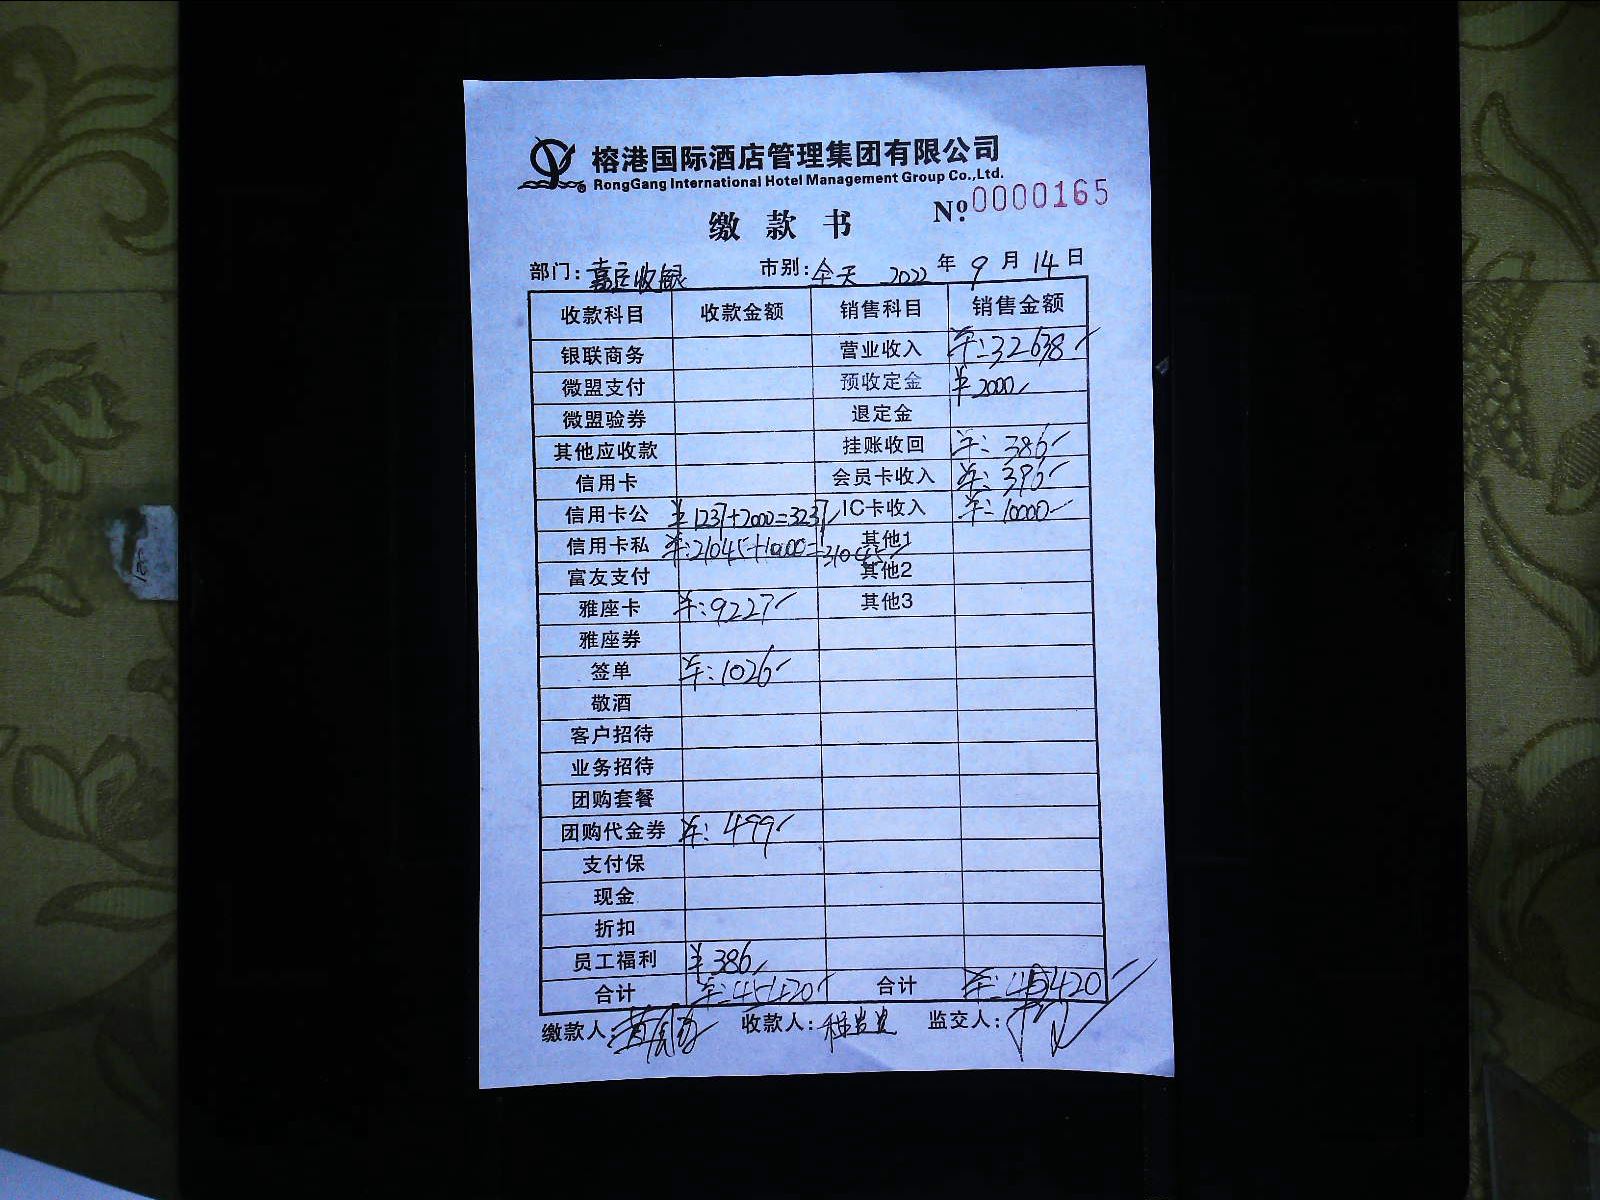 榕港国际酒店管理集团有限公司
RongGang International Hotel Management Group Co.,Ltd.
缴款书 №0000165
部门:嘉定收银 市别:全天 2022年9月14日
收款科目 收款金额 销售科目 销售金额
银联商务 营业收入 ¥:32638
微盟支付 预收定金 ¥2000
微盟验券 退定金
其他应收款 挂账收回 ¥:386
信用卡 会员卡收入 ¥:396
信用卡公 ¥1237+2000=3237 IC卡收入 ¥:10000
信用卡私 ¥:21045+10000=31045 其他1
富友支付 其他2
雅座卡 ¥:9227 其他3
雅座券
签单 ¥:1026
敬酒
客户招待
业务招待
团购套餐
团购代金券 ¥:499
支付保
现金
折扣
员工福利 ¥386
合计 ¥:45420 合计 ¥:45420
缴款人: 收款人: 监交人: